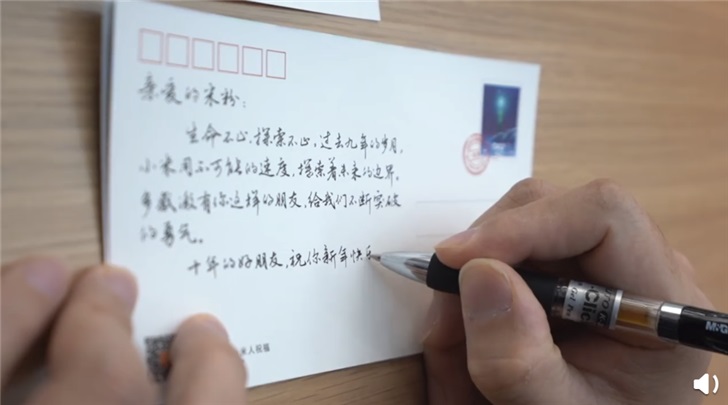 亲爱的米粉：
生命不止，探索不止，过去九年的岁月，
小米用不可能的速度，探索着未来的边界，
多数激有你这样的朋友，给我们不断突破
的勇气。
十年的好朋友，祝你新年快乐
米人祝福